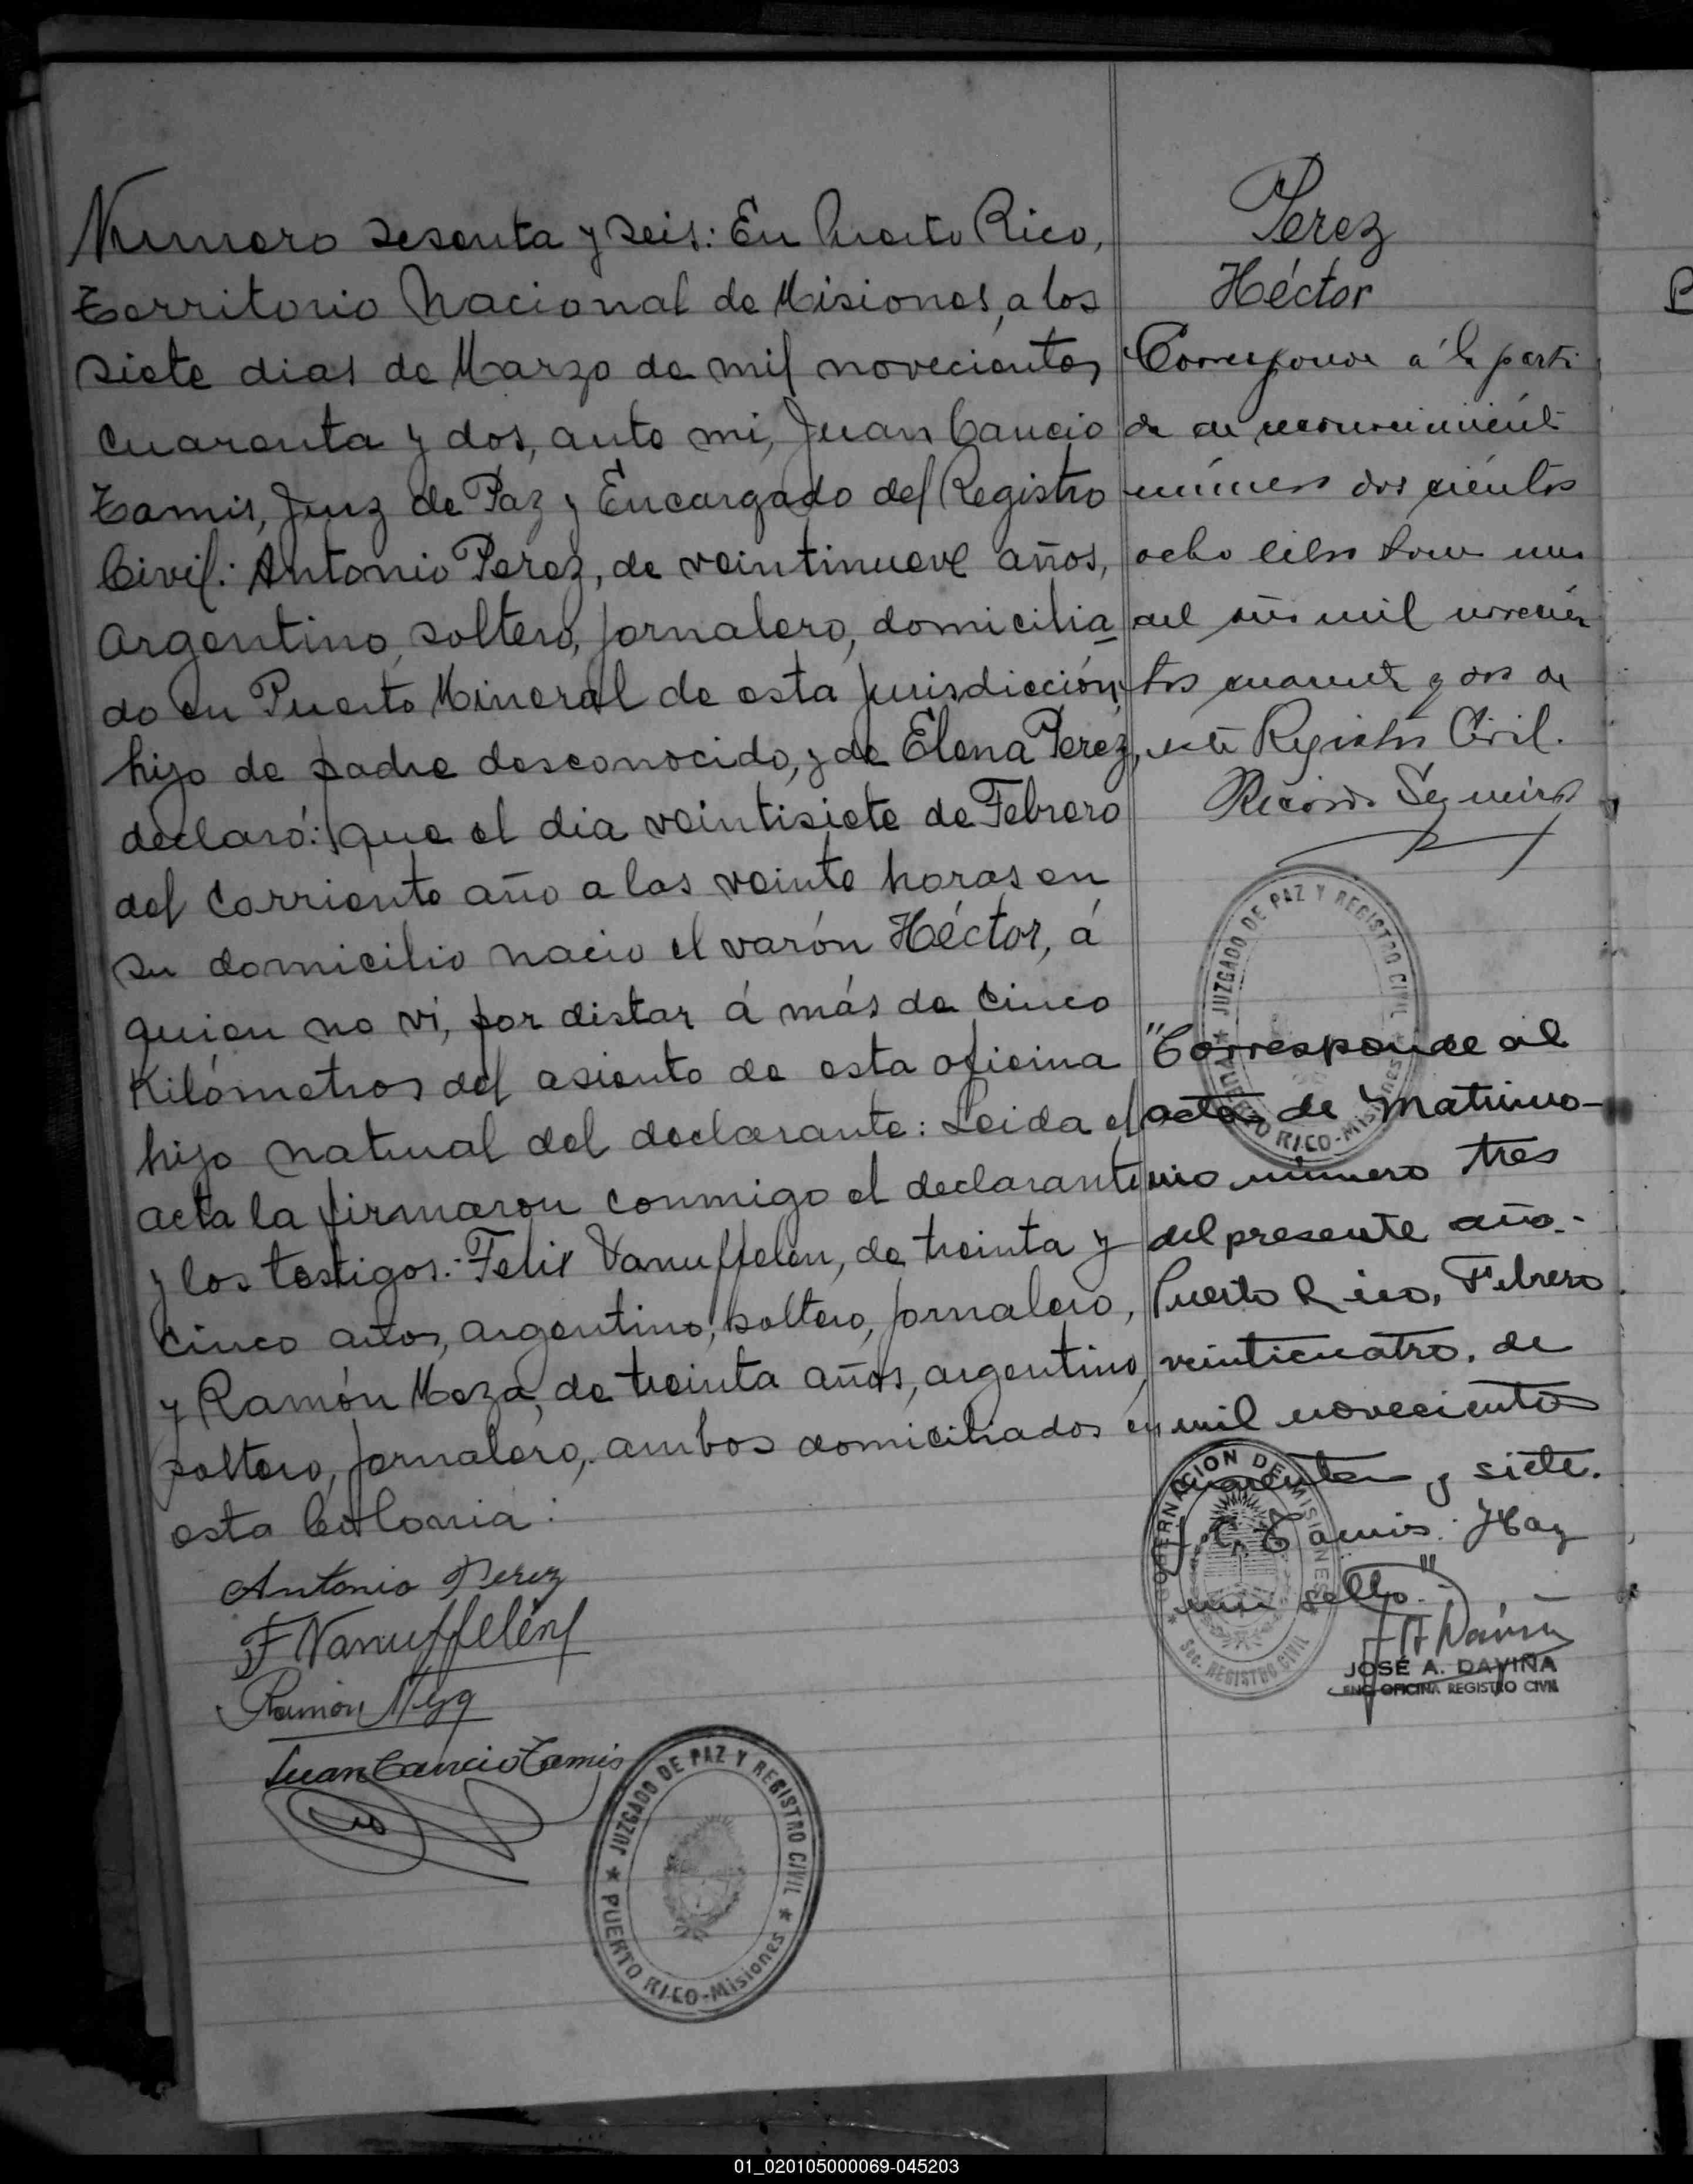 Numero sesenta y seis: En Puerto Rico,
Territorio Nacional de Misiones, a los
siete dias de Marzo de mil novecientos
cuarenta y dos, ante mi, Juan Cancio
Tamis, Juez de Paz y Encargado del Registro
Civil: Antonio Perez, de veintinueve años,
argentino, soltero, jornalero, domicilia
do en Puerto Mineral de esta jurisdicción,
hijo de padre desconocido, y de Elena Perez,
declaró: que el dia veintisiete de Febrero
del corriente año a las veinte horas en
su domicilio nacio el varón Héctor, á
quien no vi, por distar á más de cinco
Kilómetros del asiento de esta oficina
hijo natural del declarante: Leida el
acta la firmaron conmigo el declarante
y los testigos: Felix Vanuffelen, de treinta y
cinco años, argentino, soltero, jornalero,
y Ramón Meza, de treinta años, argentino,
soltero, jornalero, ambos domiciliados en
esta Colonia:
Antonio Perez
F Vanuffelén
Ramón Meza
Juan Cancio Tamis
JUZGADO DE PAZ Y REGISTRO CIVIL
PUERTO RICO-Misiones
Perez
Héctor
Corresponde a' la parti
da de reconocimient
número dos cientos
ocho libro uno
del año mil novecien
tos cuarenta y dos de
este Registro Civil.
Ricardo Sequeira
JUZGADO DE PAZ Y REGISTRO CIVIL
PUERTO RICO-Misiones
"Corresponde al
acta de Matrimo-
nio número tres
del presente año.-
Puerto Rico, Febrero
veinticuatro, de
mil novecientos
cuarenta y siete.
J. C. Tamis. Hay
un sello."
GOBERNACION DE MISIONES
Sec. REGISTRO CIVIL
JOSÉ A. DAVIÑA
ENC. OFICINA REGISTRO CIVIL
01_020105000069-045203